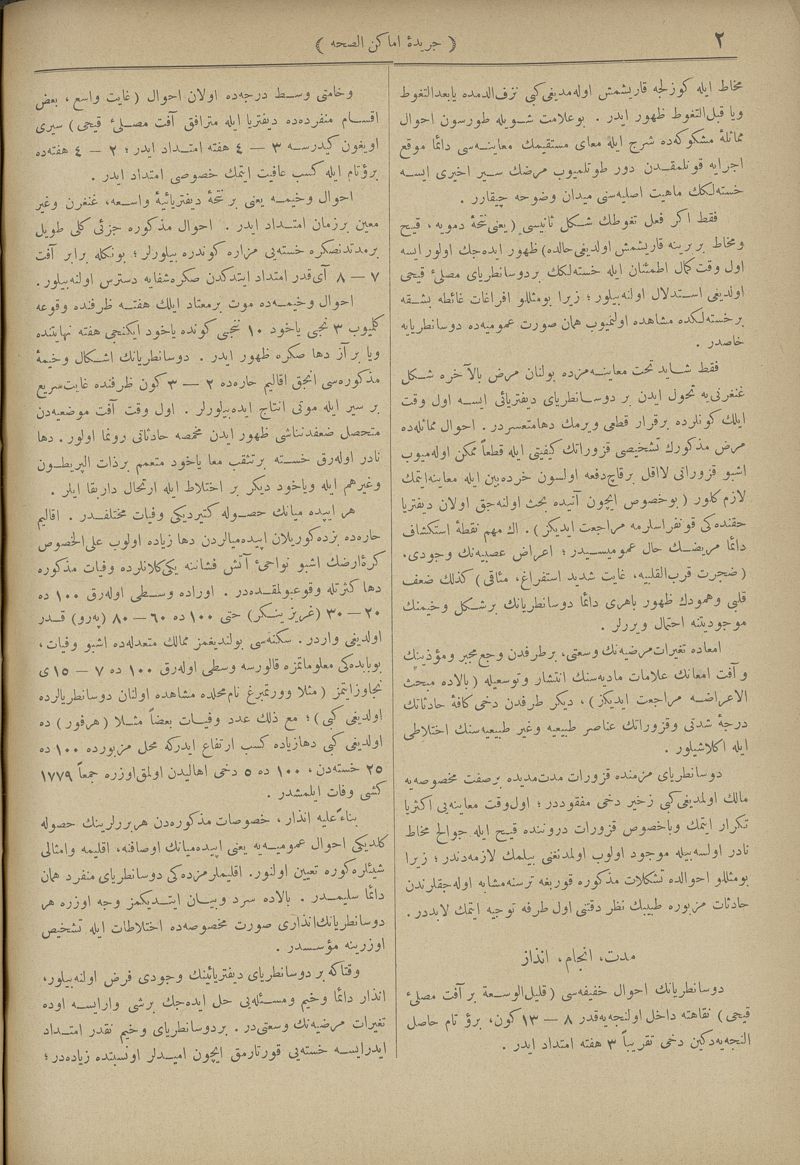 ٢
﴿ جريدۀ اماكن الصحه ﴾
مخاط ايله كوزلجه قاريشمش اوله‌مديغى كبى نزف‌الدمده يابعدالتغوط
ويا قبل‌التغوط ظهور ايدر . بوعلامت شويله طورسون احوال
مماثلۀ مشكوكه‌ده شرج ايلۀ معاى مستقيمك معاينه‌سى دائما موقع
اجرايه قونلمقدن دور طوتلميوب مرضك سير اخيرى ايسه
خسته‌لكك ماهيت اصليه‌سنى ميدان وضوحه چيقارر .
فقط اكر فعل تغوطك شكل ثانيسى (يعنى نتحۀ دمويه ، قيح
ومخاط بربرينه قاريشمش اولديغى حالده) ظهور ايده‌جك اولور ايسه
اول وقت كمال اطمئنان ايله خسته‌لكك بر دوسانطرياى مصلئ قيحى
اولديغى استدلال اولنه‌بيلور ؛ زيرا بومثللو افراغات غائطه بشقه
برخسته‌لكده مشاهده اولنميوب همان صورت عموميه‌ده دوسانطريايه
خاصدر .
فقط شايد تحت معاينه‌مزده بولنان مرض بالآخره شكل
غنغرنى‌يه تحول ايدن بر دوسانطرياى ديفتريائى ايسه اول وقت
ايلك كونلرده برقرار قطعى ويرمك دها متعسردر . احوال مماثله‌ده
مرض مذكورك تشخيصى قزوراتك كيفيتى ايله قطعاً ممكن اوله‌ميوب
اشبو قزوراتى لااقل برقاچ دفعه اولسون خرده‌بين ايله معاينه ايتمك
لازم كلور ( بوخصوص ايچون آتيده بحث اولنه‌جق اولان ديفتريا
حقنده‌كى قونفرانسلرمه مراجعت ايديكز ) . اك مهم نقطۀ استكشاف
دائما مريضك حال عموميسيدر ؛ اعراض عصبيه‌نك وجودى،
(ضجرت قرب‌القلبيه، غايت شديد استفراغ، مثاقى) كذلك ضعف
قلبى وهمودك ظهور باهرى دائما دوسانطريانك برشكل وخيمنك
موجوديتنه احتمال ويررلر .
امعاده تغيرات مرضيه‌نك وسعتى، برطرفدن وجع مجبر ومؤذينك
و آفت امعانك علامات ماديه‌سنك انتشار وتوسعيله ( بالاده مبحث
الاعراضه مراجعت ايديكز ) ، ديكر طرفدن دخى كافۀ حادثاتك
درجۀ شدتى وقزوراتك عناصر طبيعيه وغير طبيعيه‌سنك اختلاطى
ايله اكلاشيلور .
دوسانطرياى مزمنده قزورات مدت مديده برصفت مخصوصه‌يه
مالك اولمديغى كبى زخير دخى مفقوددر ؛ اول وقت معاينه‌يى اكثريا
تكرار ايتمك وبالخصوص قزورات دروننده قيح ايله جوالح مخاط
نادر اولسه‌بيله موجود اولوب اولمدنغنى بيلمك لازمه‌دندر ؛ زيرا
بومثللو احوالده تشكلات مذكوره قوربغه ترسنه مشابه اوله‌جقلرندن
حادثات مزبوره طبيبك نظر دقتنى اول طرفه توجيه ايتمك لابددر .
مدت، انجام، انذار
دوسانطريانك احوال خفيفه‌سى ( قليل‌الوسعة بر آفت مصلئ
قيحى ) نقاهته داخل اولنجه‌يه‌قدر ٨ — ١٣ كون، برؤ تام حاصل
النجه‌يه‌دكين دخى تقريباً ٣ هفته امتداد ايدر .
وخامتى وسط درجه‌ده اولان احوال ( غايت واسع ، بعض
اقسام منفرده‌ده ديفتريا ايله مترافق آفت مصلئ قيحى ) سيرى
اويغون كيدرسه ٣ — ٤ هفته امتداد ايدر ؛ ٢ — ٤ هفته‌ده
برؤ تام ايله كسب عافيت ايتمك خصوصى امتداد ايدر .
احوال وخيمه يعنى بر نتحۀ ديفتريائيۀ واسعه، غنغرن وغير
معين برزمان امتداد ايدر . احوال مذكوره جزئى كلى طويل
برمدتدنصكره خسته‌يى مزاره كوندره بيلورلر ؛ بونكله برابر آفت
٧ — ٨ آى‌قدر امتداد ايتدكدن صكره شفايه دسترس اولنه‌بيلور .
احوال وخيمه‌ده موت برمعتاد ايلك هفته ظرفنده وقوعه
كلميوب ٣ نجى ياخود ١٠ نجى كونده ياخود ايكنجى هفته نهايتنده
ويا بر آز دها صكره ظهور ايدر . دوسانطريانك اشكال وخيمۀ
مذكوره‌سى انجق اقاليم حاره‌ده ٢ — ٣ كون ظرفنده غايت سريع
بر سير ايله موتى انتاج ايده‌بيلورلر . اول وقت آفت موضعيه‌دن
متحصل ضعفدنناشى ظهور ايدن مخمصه حادثاتى رونما اولور . دها
نادر اوله‌رق خسته برتثقب معا ياخود متعمم برذات البريطون
وغيرهم ايله وياخود ديكر بر اختلاط ايله ارتحال داربقا ايلر .
هر ايپيده ميانك حصوله كتيرديكى وفيات مختلفدر . اقاليم
حاره‌ده بزده‌كوريلان ايپيده‌ميالردن دها زياده اولوب على‌الخصوص
كرۀ ارضك اشبو نواحئ آتش فشاننه يكى‌كلانلرده وفيات مذكوره
دها كثرتله وقوعبولمقده‌در . اوراده وسطى اوله‌رق ١٠٠ ده
٢٠ — ٣٠ (غريزينكر) حتى ١٠٠ ده ٦٠ — ٨٠ (په‌رو) قدر
اولديغى واردر . سكنه‌سى بولنديغمز ممالك متعدله‌ده اشبو وفيات،
بوبابده‌كى معلوماتمزه قالورسه وسطى اوله‌رق ١٠٠ ده ٧ — ١٥ ى
تجاوز ايتمز ( مثلا وورتمبرغ نام‌محلده مشاهده اولنان دوسانطريالرده
اولديغى كبى ) ؛ مع ذلك عدد وفيات بعضاً مثلا ( هرفور ) ده
اولديغى كبى دها زياده كسب ارتفاع ايدركه محل مزبورده ١٠٠ ده
٢٥ خسته‌دن، ١٠٠ ده ٥ دخى اهاليدن اولمق‌اوزره جمعاً ١٧٧٩
كشى وفات ايلمشدر .
بناءً عليه انذار ، خصوصات مذكوره‌دن هربرلرينك حصوله
كلديكى احوال عموميه‌يه يعنى ايپيده‌ميانك اوصافنه، اقليمه وامثالى
شيئلره كوره تعيين اولنور. اقليملرمزده‌كى دوسانطرياى منفرد همان
دائما سليمدر . بالاده سرد وبيان ايتديكمز وجه اوزره هر
دوسانطريانك انذارى صورت مخصوصه‌ده اختلاطات ايله تشخيص
اوزرينه مؤسسدر .
وقتاكه بر دوسانطرياى ديفتريائينك وجودى فرض اولنه‌بيلور،
انذار دائما وخيم ومسئله‌يى حل ايده‌جك برشى وارايسه اوده
تغيرات مرضيه‌نك وسعتى‌در . بردوسانطرياى وخيم نقدر امتداد
ايدرايسه خسته‌يى قورتارمق ايچون اميدلر اونسبتده زياده‌در ؛